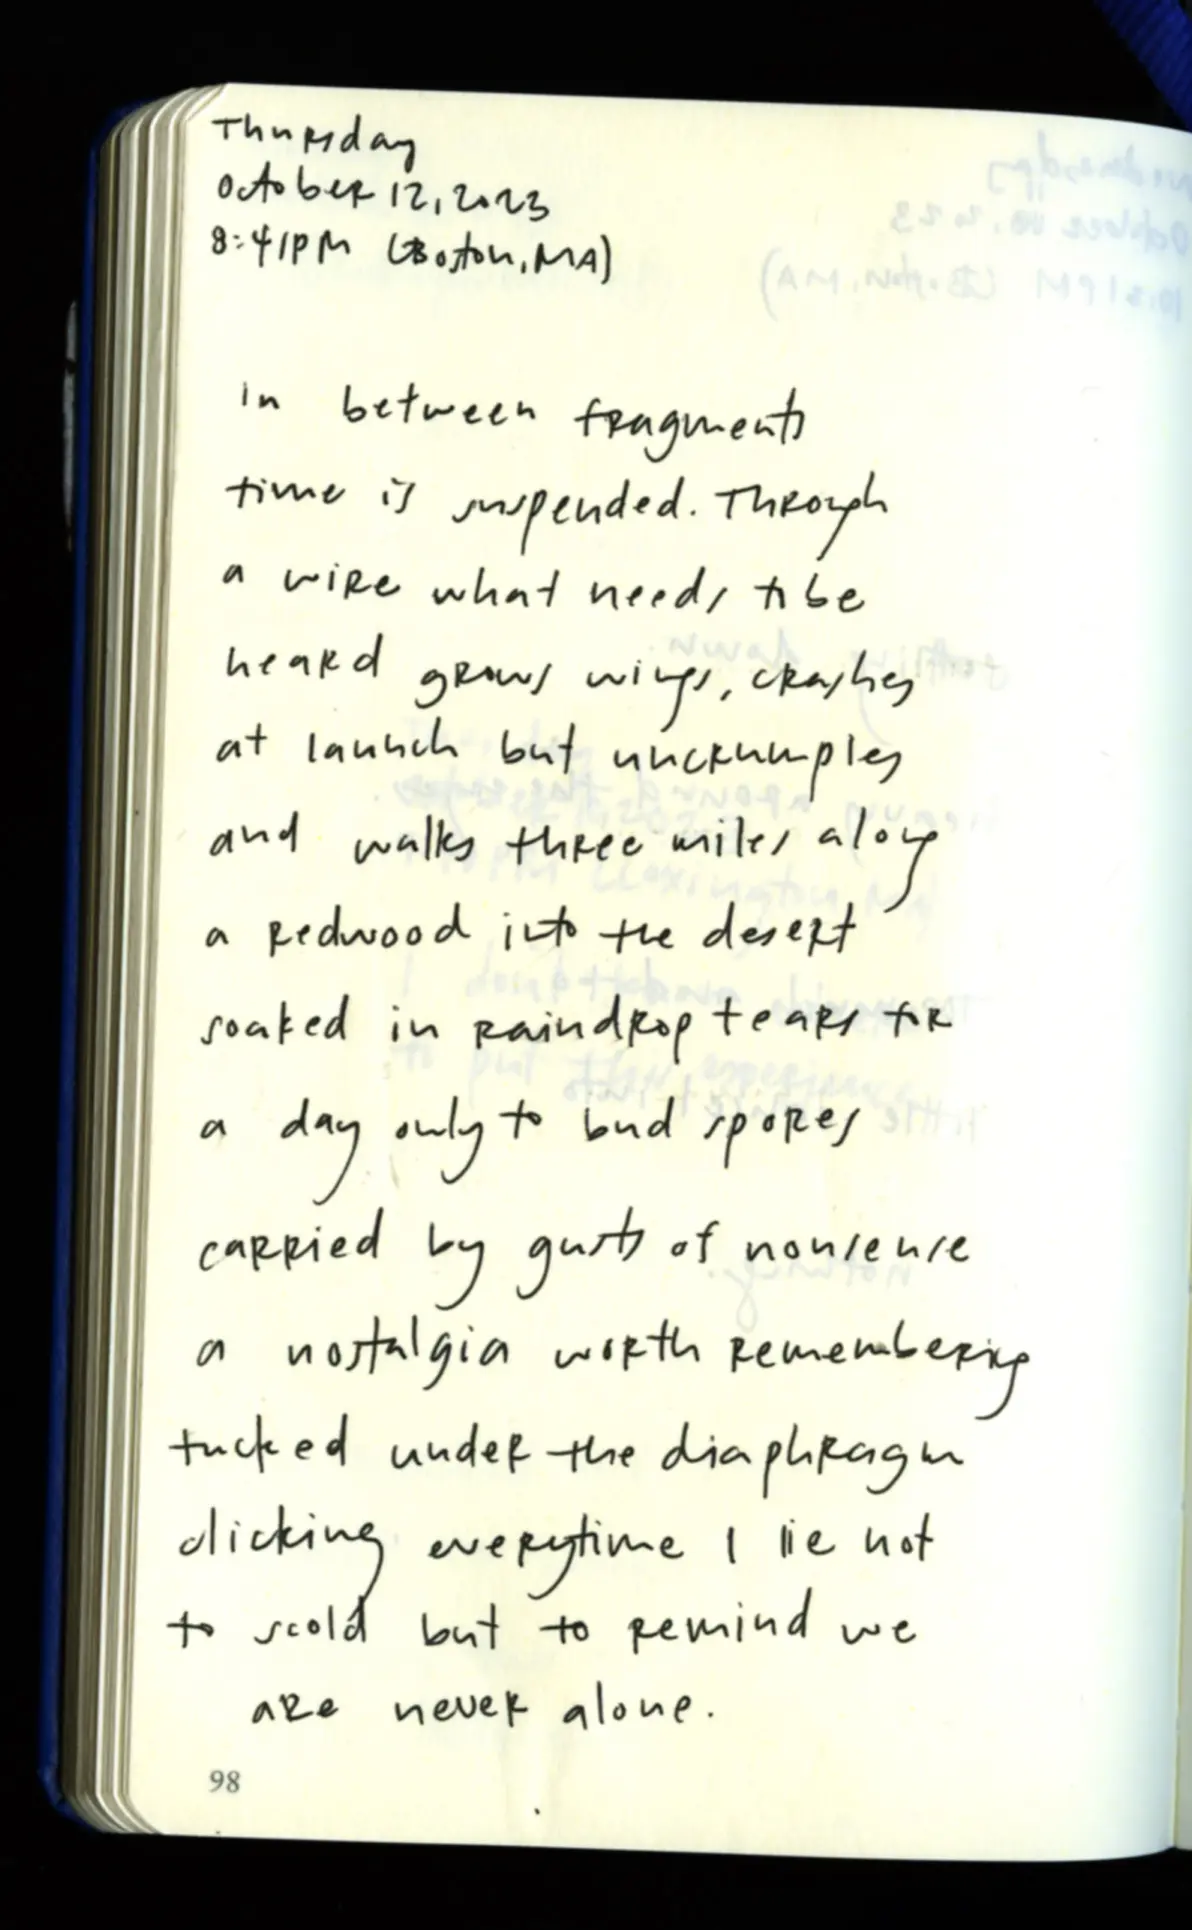 Thursday
October 12, 2023
8:41PM (Boston, MA)
in between fragments
time is suspended. Through
a wire what needs to be
heard grows wings, crashes
at launch but uncrumples
and walks three miles along
a redwood into the desert
soaked in raindrop tears for
a day only to bud spores
carried by gusts of nonsense
a nostalgia worth remembering
tucked under the diaphragm
clicking everytime I lie not
to scold but to remind we
are never alone.
98